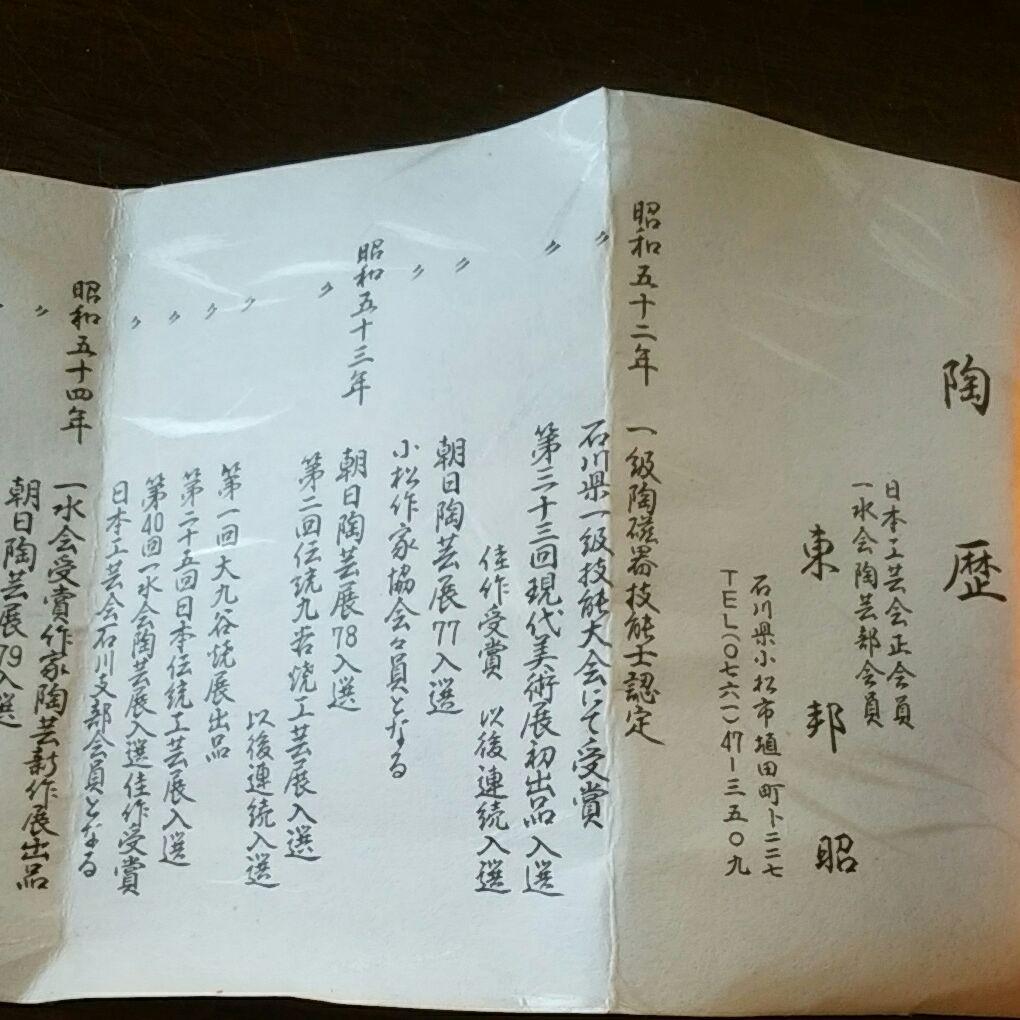 陶歴
日本工芸会正会員
一水会陶芸部会員
東邦昭
石川県小松市埴田町ト二二七
TEL(〇七六一)47-三五〇九
昭和五十二年 一級陶磁器技能士認定
〃 石川県一級技能大会にて受賞
〃 第三十三回現代美術展初出品入選
佳作受賞 以後連続入選
〃 朝日陶芸展77入選
〃 小松作家協会々員となる
昭和五十三年 朝日陶芸展78入選
〃 第二回伝統九谷焼工芸展入選
以後連続入選
〃 第一回大九谷焼展出品
〃 第二十五回日本伝統工芸展入選
〃 第40回一水会陶芸展入選佳作受賞
〃 日本工芸会石川支部会員となる
昭和五十四年 一水会受賞作家陶芸新作展出品
〃 朝日陶芸展79入選